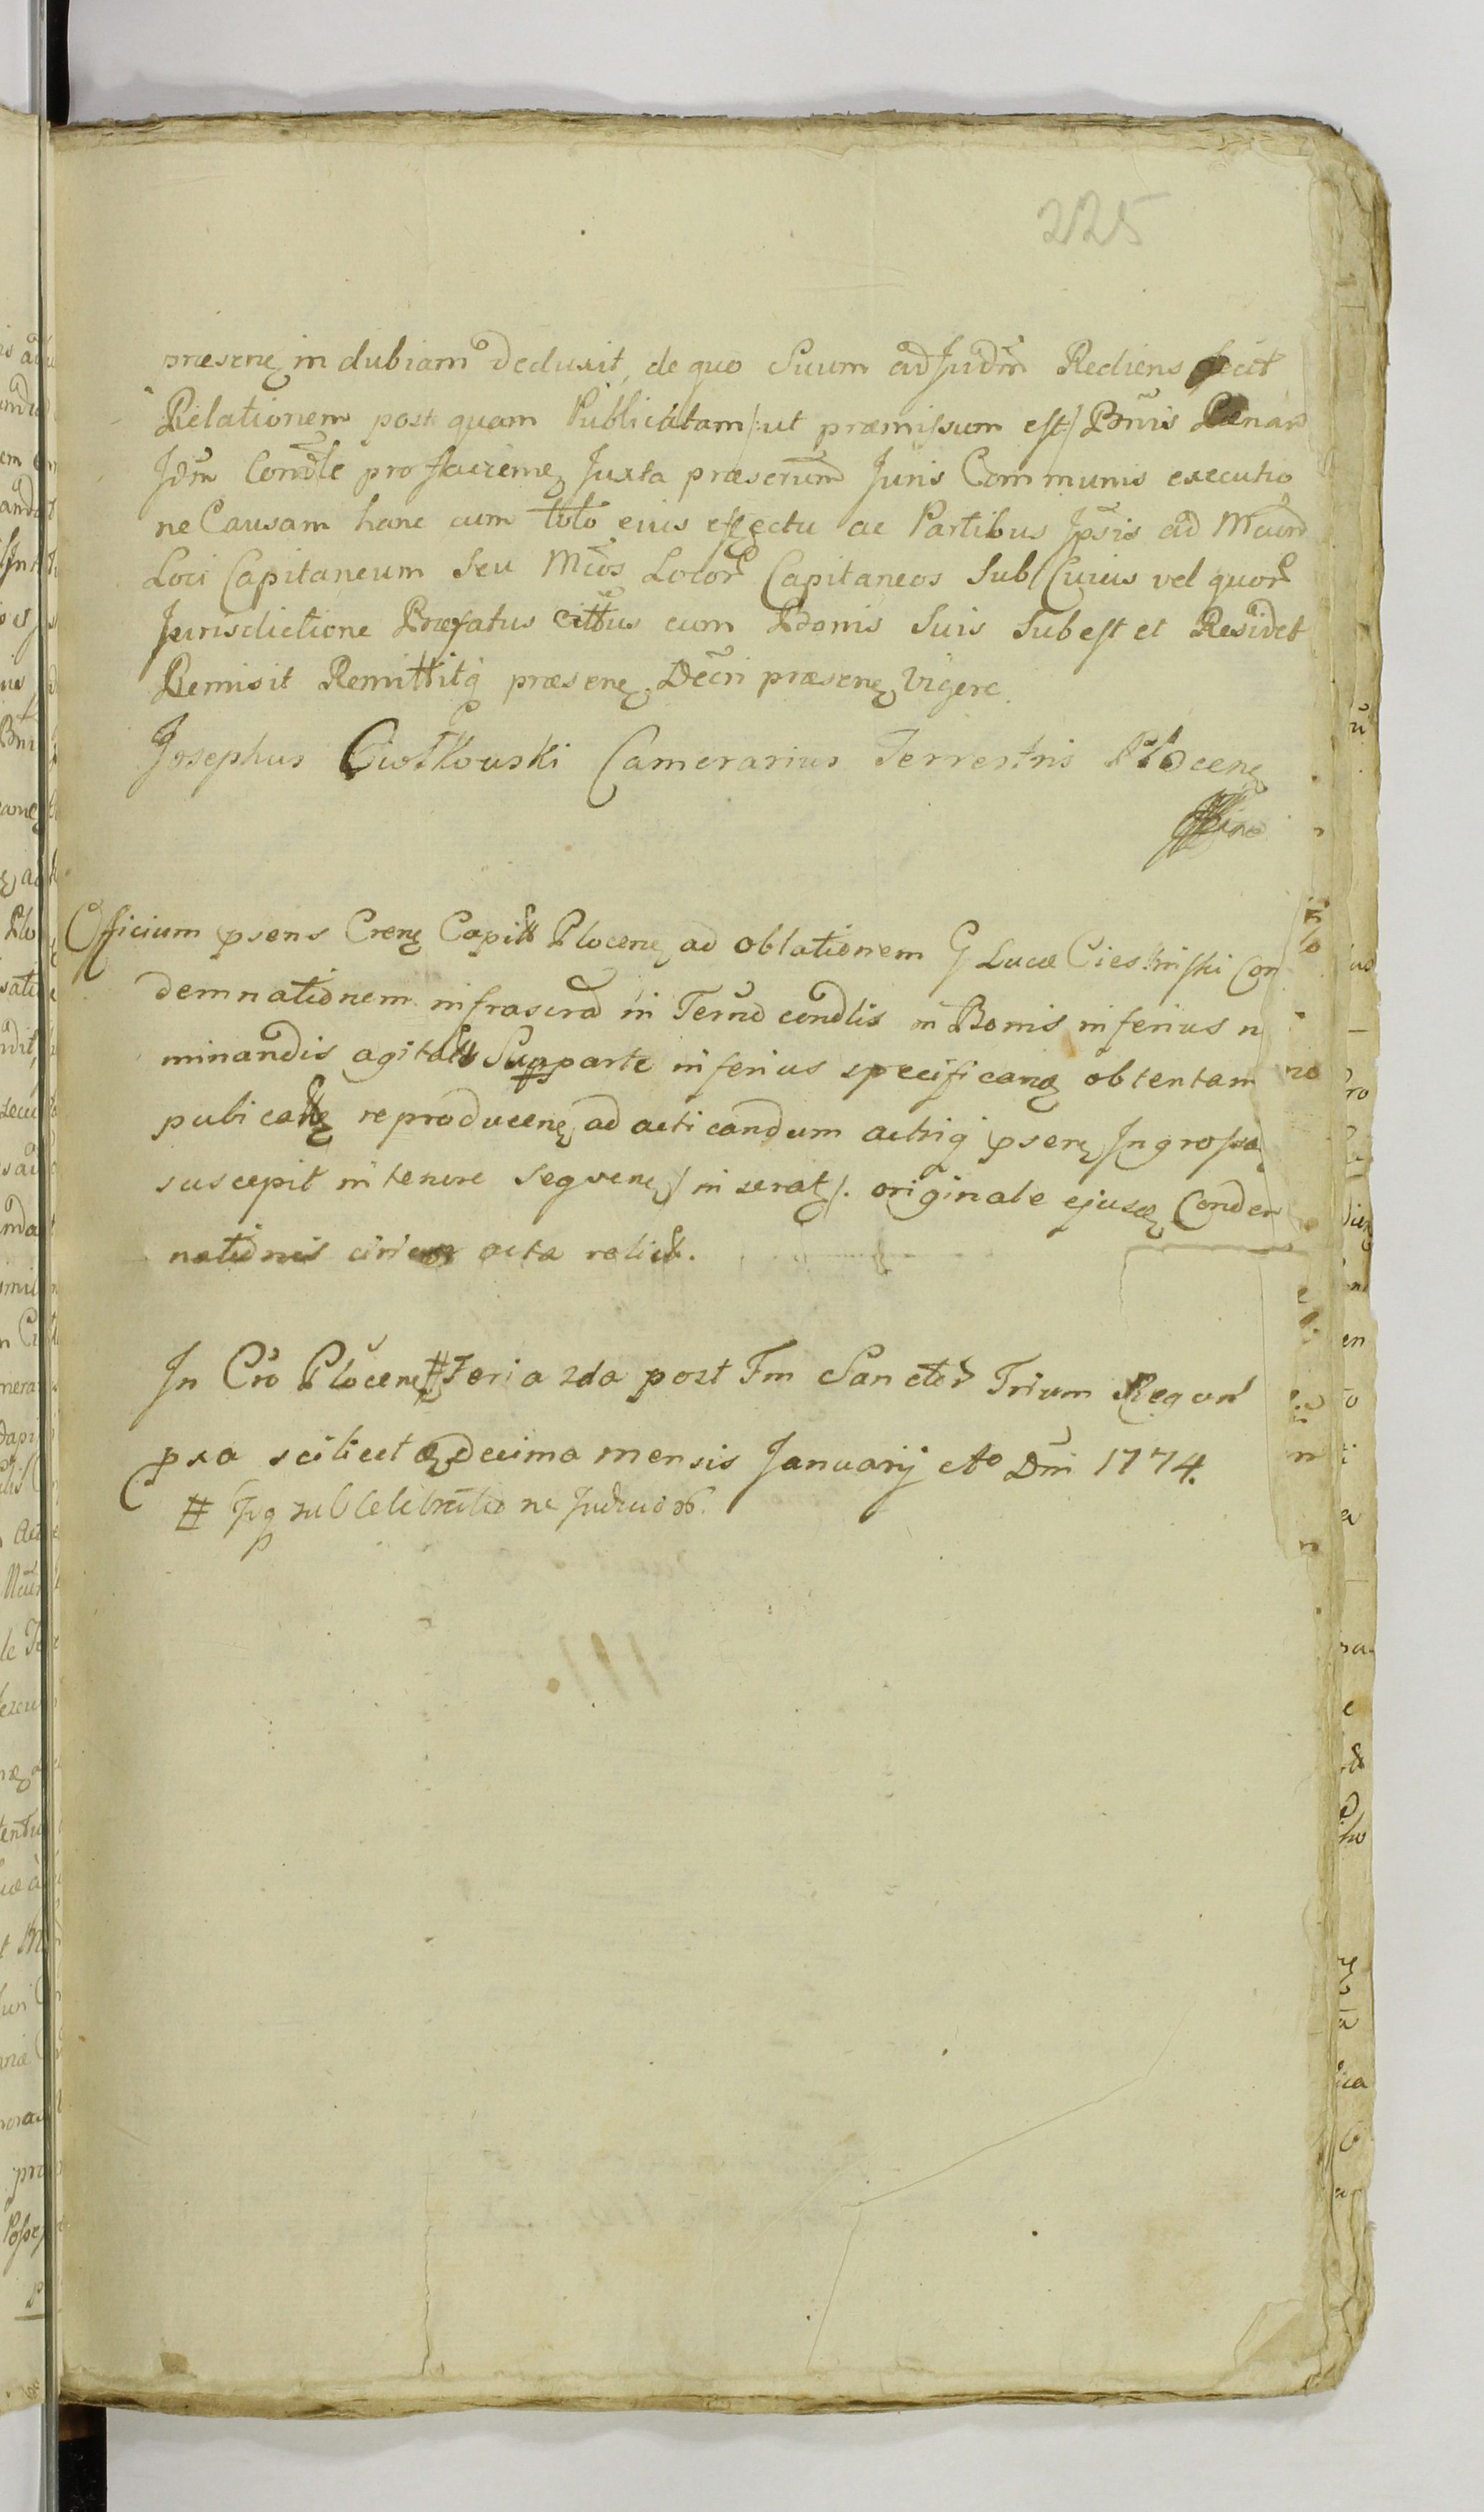 225
præsenę in dubiam deduxit, de quo Suum ad Judm̃ Rediens fecit
Relationem post quam Publicatam /: ut præmissum est :/ Bnnis Pœnar
Jdm̃ Condle pro facienę Juxta præscrium Juris Communis executio
ne Causam hanc cum toto eius effectu ac Partibus Jpsis ad Mcum
Loci Capitaneum Seu Mcos Locor Capitaneos Sub Cuius vel quor
Jurisdictione Præfatus cittus cum Bonis Suis Subest et Residet
Remisit Remittitq præsenę Decri præsenę Vigore.
Josephus Ciołkowski Camerarius Terrestris Płocenę
Officium psens Crenę Capitt Plocenę ad oblationem G Lucæ Cieskinski Con
demnationem infrascra in Termo condlis in Bonis inferius n
minandis agitatt Supparte inferius specificanę obtentam
publicattę reproducenę ad acticandum actisq psenę Jngrossa
suscepit in tenore sequenę /. inseratę /. originale ejusdę Condem
nationis circa acta relict.
In Cro Plocenę # Feria 2da post Fm Sanctor Trium Regum
pxa scilicet decima mensis Januarij Ao Dni 1774.
# Jpq sub celebratione Judicior.